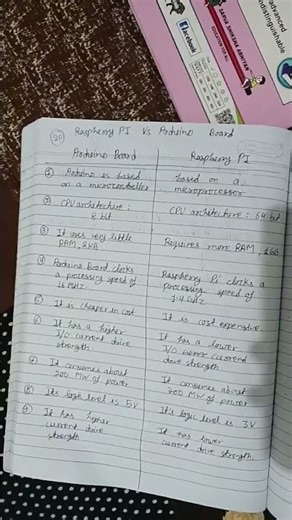 advanced
indistinguishable
SARVA SHIKSHA ABHIYAN
facebook
20 Raspberry PI Vs Arduino Board
Arduino Board
① Arduino is based
on a microcontroller
② CPU architecture :
8 bit
③ It uses very little
RAM, 2KB
④ Arduino Board clocks
a processing speed of
16 MHZ
⑤ It is cheaper in cost
⑥ It has a higher
I/O current drive
strength
⑦ It consumes about
200 MW of power
⑧ It's logic level is 5V
⑨ It has higher
current drive
strength
Raspberry PI
based on a
microprocessor
CPU architecture : 64 bit
Requires more RAM, 1GB
Raspberry Pi clocks a
processing speed of
1.4 GHZ
It is cost expensive
It has a lower
I/O current
drive strength
It consumes about
700 MW of power
It's logic level is 3V
It has lower
current drive strength